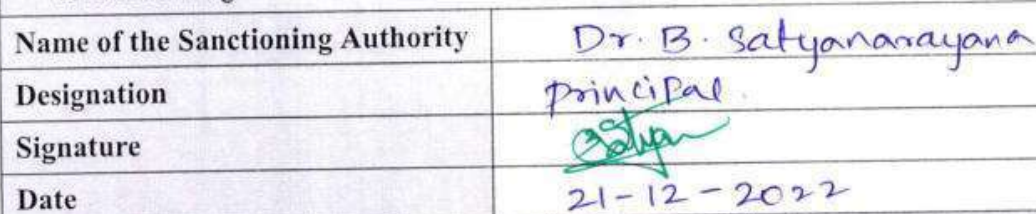 Name of the Sanctioning Authority Dr. B. Satyanarayana
Designation Principal.
Signature BSatyan
Date 21-12-2022